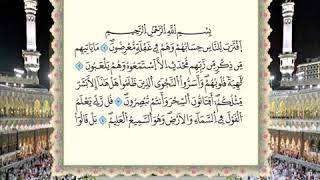 بِسْمِ ٱللَّهِ ٱلرَّحْمَٰنِ ٱلرَّحِيمِ
ٱقْتَرَبَ لِلنَّاسِ حِسَابُهُمْ وَهُمْ فِى غَفْلَةٍ مُّعْرِضُونَ ۝١ مَا يَأْتِيهِم
مِّن ذِكْرٍ مِّن رَّبِّهِم مُّحْدَثٍ إِلَّا ٱسْتَمَعُوهُ وَهُمْ يَلْعَبُونَ ۝٢
لَاهِيَةً قُلُوبُهُمْ وَأَسَرُّوا۟ ٱلنَّجْوَى ٱلَّذِينَ ظَلَمُوا۟ هَلْ هَٰذَآ إِلَّا بَشَرٌ
مِّثْلُكُمْ أَفَتَأْتُونَ ٱلسِّحْرَ وَأَنتُمْ تُبْصِرُونَ ۝٣ قَالَ رَبِّى يَعْلَمُ
ٱلْقَوْلَ فِى ٱلسَّمَآءِ وَٱلْأَرْضِ وَهُوَ ٱلسَّمِيعُ ٱلْعَلِيمُ ۝٤ بَلْ قَالُوٓا۟